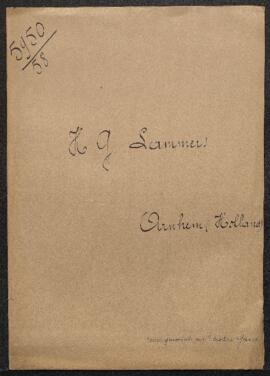 5950/58
H G Lammers
Arnhem, Holland